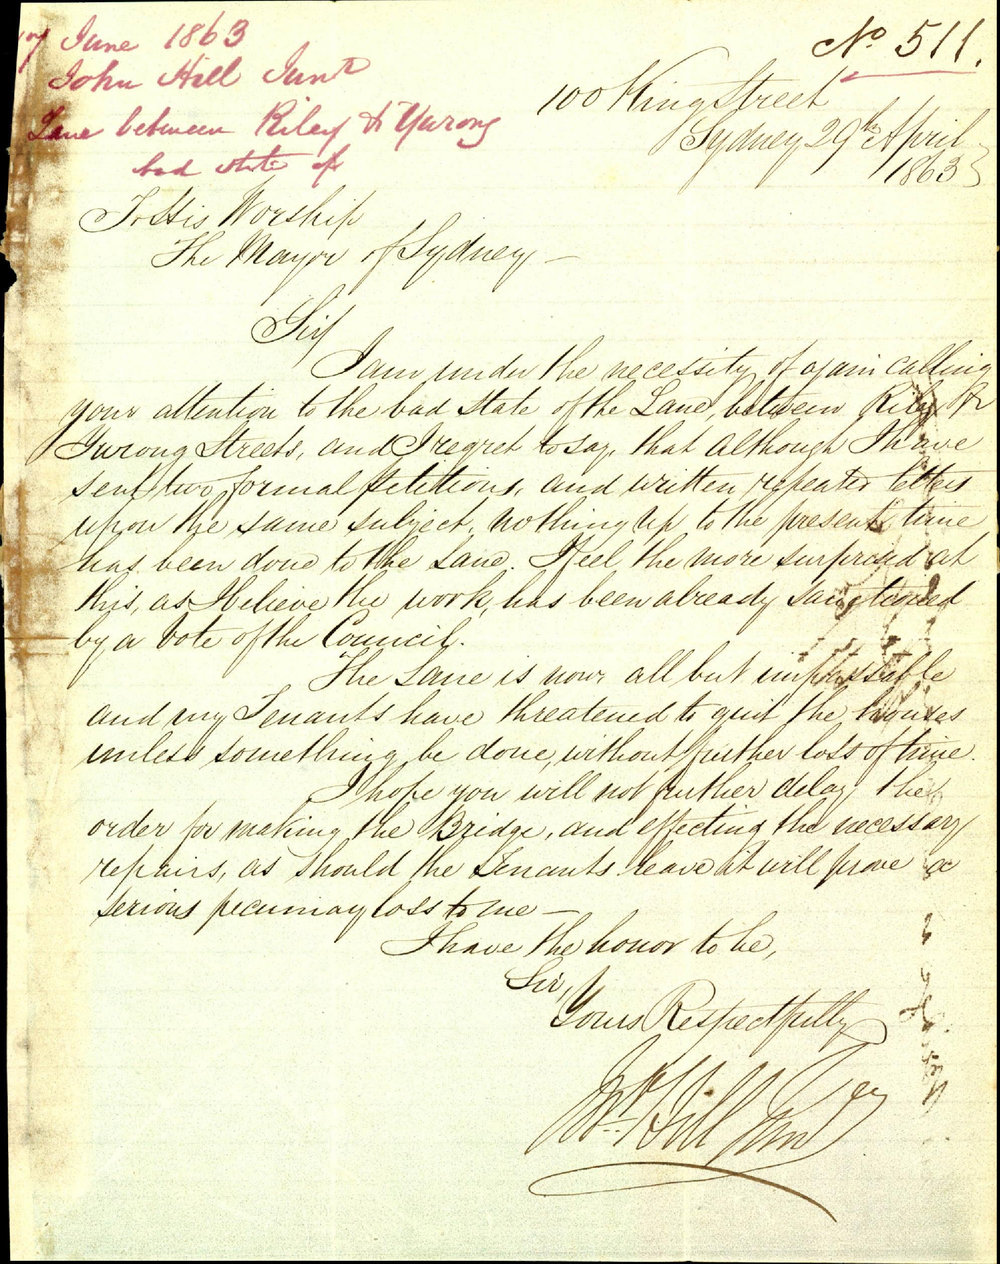 June 1863
John Hill Junr
Lane between Riley & Yurong
bad state of
No 511.
100 King Street
Sydney 29th April
1863
To His Worship
The Mayor of Sydney –
Sir
I am under the necessity of again calling
your attention to the bad state of the Lane, between Riley &
Yurong Streets, and I regret to say, that although I have
sent two formal Petitions, and written repeated letters
upon the same subject, nothing up to the present time
has been done to the Lane. I feel the more surprised at
this, as I believe the work, has been already sanctioned
by a Vote of the Council.
The Lane is now all but impassable
and my Tenants have threatened to quit the houses
unless something be done, without further loss of time.
I hope you will not further delay the
order for making the Bridge, and effecting the necessary
repairs, as should the Tenants leave it will prove a
serious pecuniary loss to me –
I have the honor to be,
Sir,
Yours Respectfully
Jn. Hill Junr